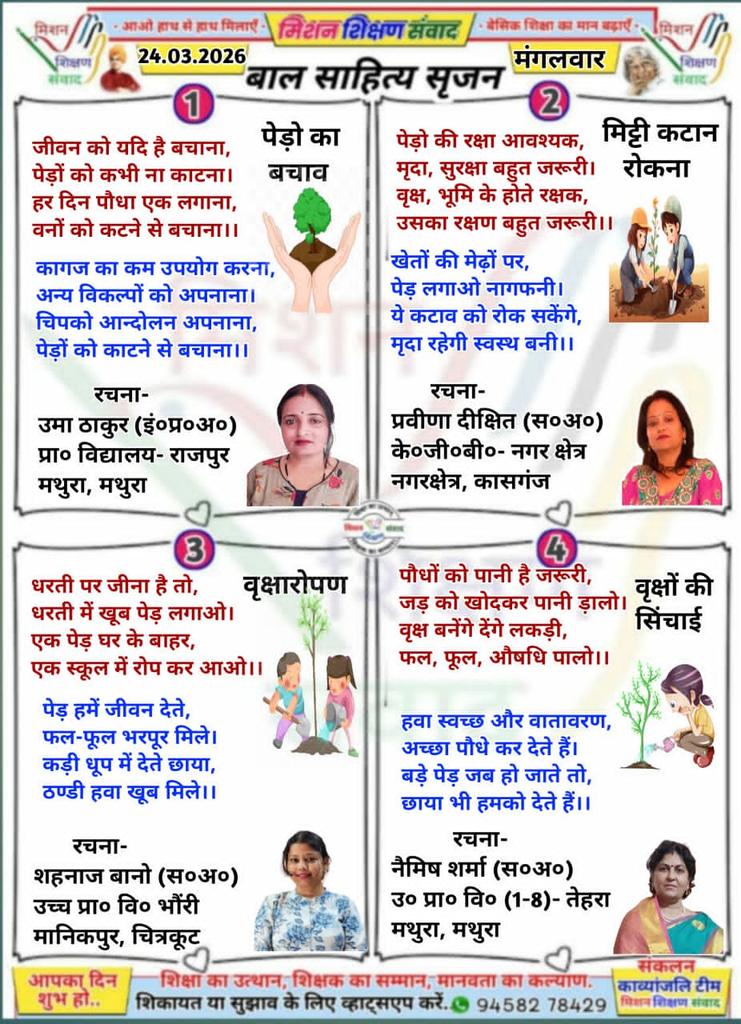 मिशन
शिक्षण
संवाद
- आओ हाथ से हाथ मिलाएँ -
मिशन शिक्षण संवाद
- बेसिक शिक्षा का मान बढ़ाएँ -
मिशन
शिक्षण
संवाद
24.03.2026
बाल साहित्य सृजन
मंगलवार
1
पेड़ो का
बचाव
जीवन को यदि है बचाना,
पेड़ों को कभी ना काटना।
हर दिन पौधा एक लगाना,
वनों को कटने से बचाना।।
कागज का कम उपयोग करना,
अन्य विकल्पों को अपनाना।
चिपको आन्दोलन अपनाना,
पेड़ों को काटने से बचाना।।
रचना-
उमा ठाकुर (इं०प्र०अ०)
प्रा० विद्यालय- राजपुर
मथुरा, मथुरा
2
मिट्टी कटान
रोकना
पेड़ो की रक्षा आवश्यक,
मृदा, सुरक्षा बहुत जरूरी।
वृक्ष, भूमि के होते रक्षक,
उसका रक्षण बहुत जरूरी।।
खेतों की मेढ़ों पर,
पेड़ लगाओ नागफनी।
ये कटाव को रोक सकेंगे,
मृदा रहेगी स्वस्थ बनी।।
रचना-
प्रवीणा दीक्षित (स०अ०)
के०जी०बी०- नगर क्षेत्र
नगरक्षेत्र, कासगंज
3
वृक्षारोपण
धरती पर जीना है तो,
धरती में खूब पेड़ लगाओ।
एक पेड़ घर के बाहर,
एक स्कूल में रोप कर आओ।।
पेड़ हमें जीवन देते,
फल-फूल भरपूर मिले।
कड़ी धूप में देते छाया,
ठण्डी हवा खूब मिले।।
रचना-
शहनाज बानो (स०अ०)
उच्च प्रा० वि० भौंरी
मानिकपुर, चित्रकूट
4
वृक्षों की
सिंचाई
पौधों को पानी है जरूरी,
जड़ को खोदकर पानी ड़ालो।
वृक्ष बनेंगे देंगे लकड़ी,
फल, फूल, औषधि पालो।।
हवा स्वच्छ और वातावरण,
अच्छा पौधे कर देते हैं।
बड़े पेड़ जब हो जाते तो,
छाया भी हमको देते हैं।।
रचना-
नैमिष शर्मा (स०अ०)
उ० प्रा० वि० (1-8)- तेहरा
मथुरा, मथुरा
आपका दिन
शुभ हो..
शिक्षा का उत्थान, शिक्षक का सम्मान, मानवता का कल्याण.
शिकायत या सुझाव के लिए व्हाट्सएप करें. 94582 78429
संकलन
काव्यांजलि टीम
मिशन शिक्षण संवाद